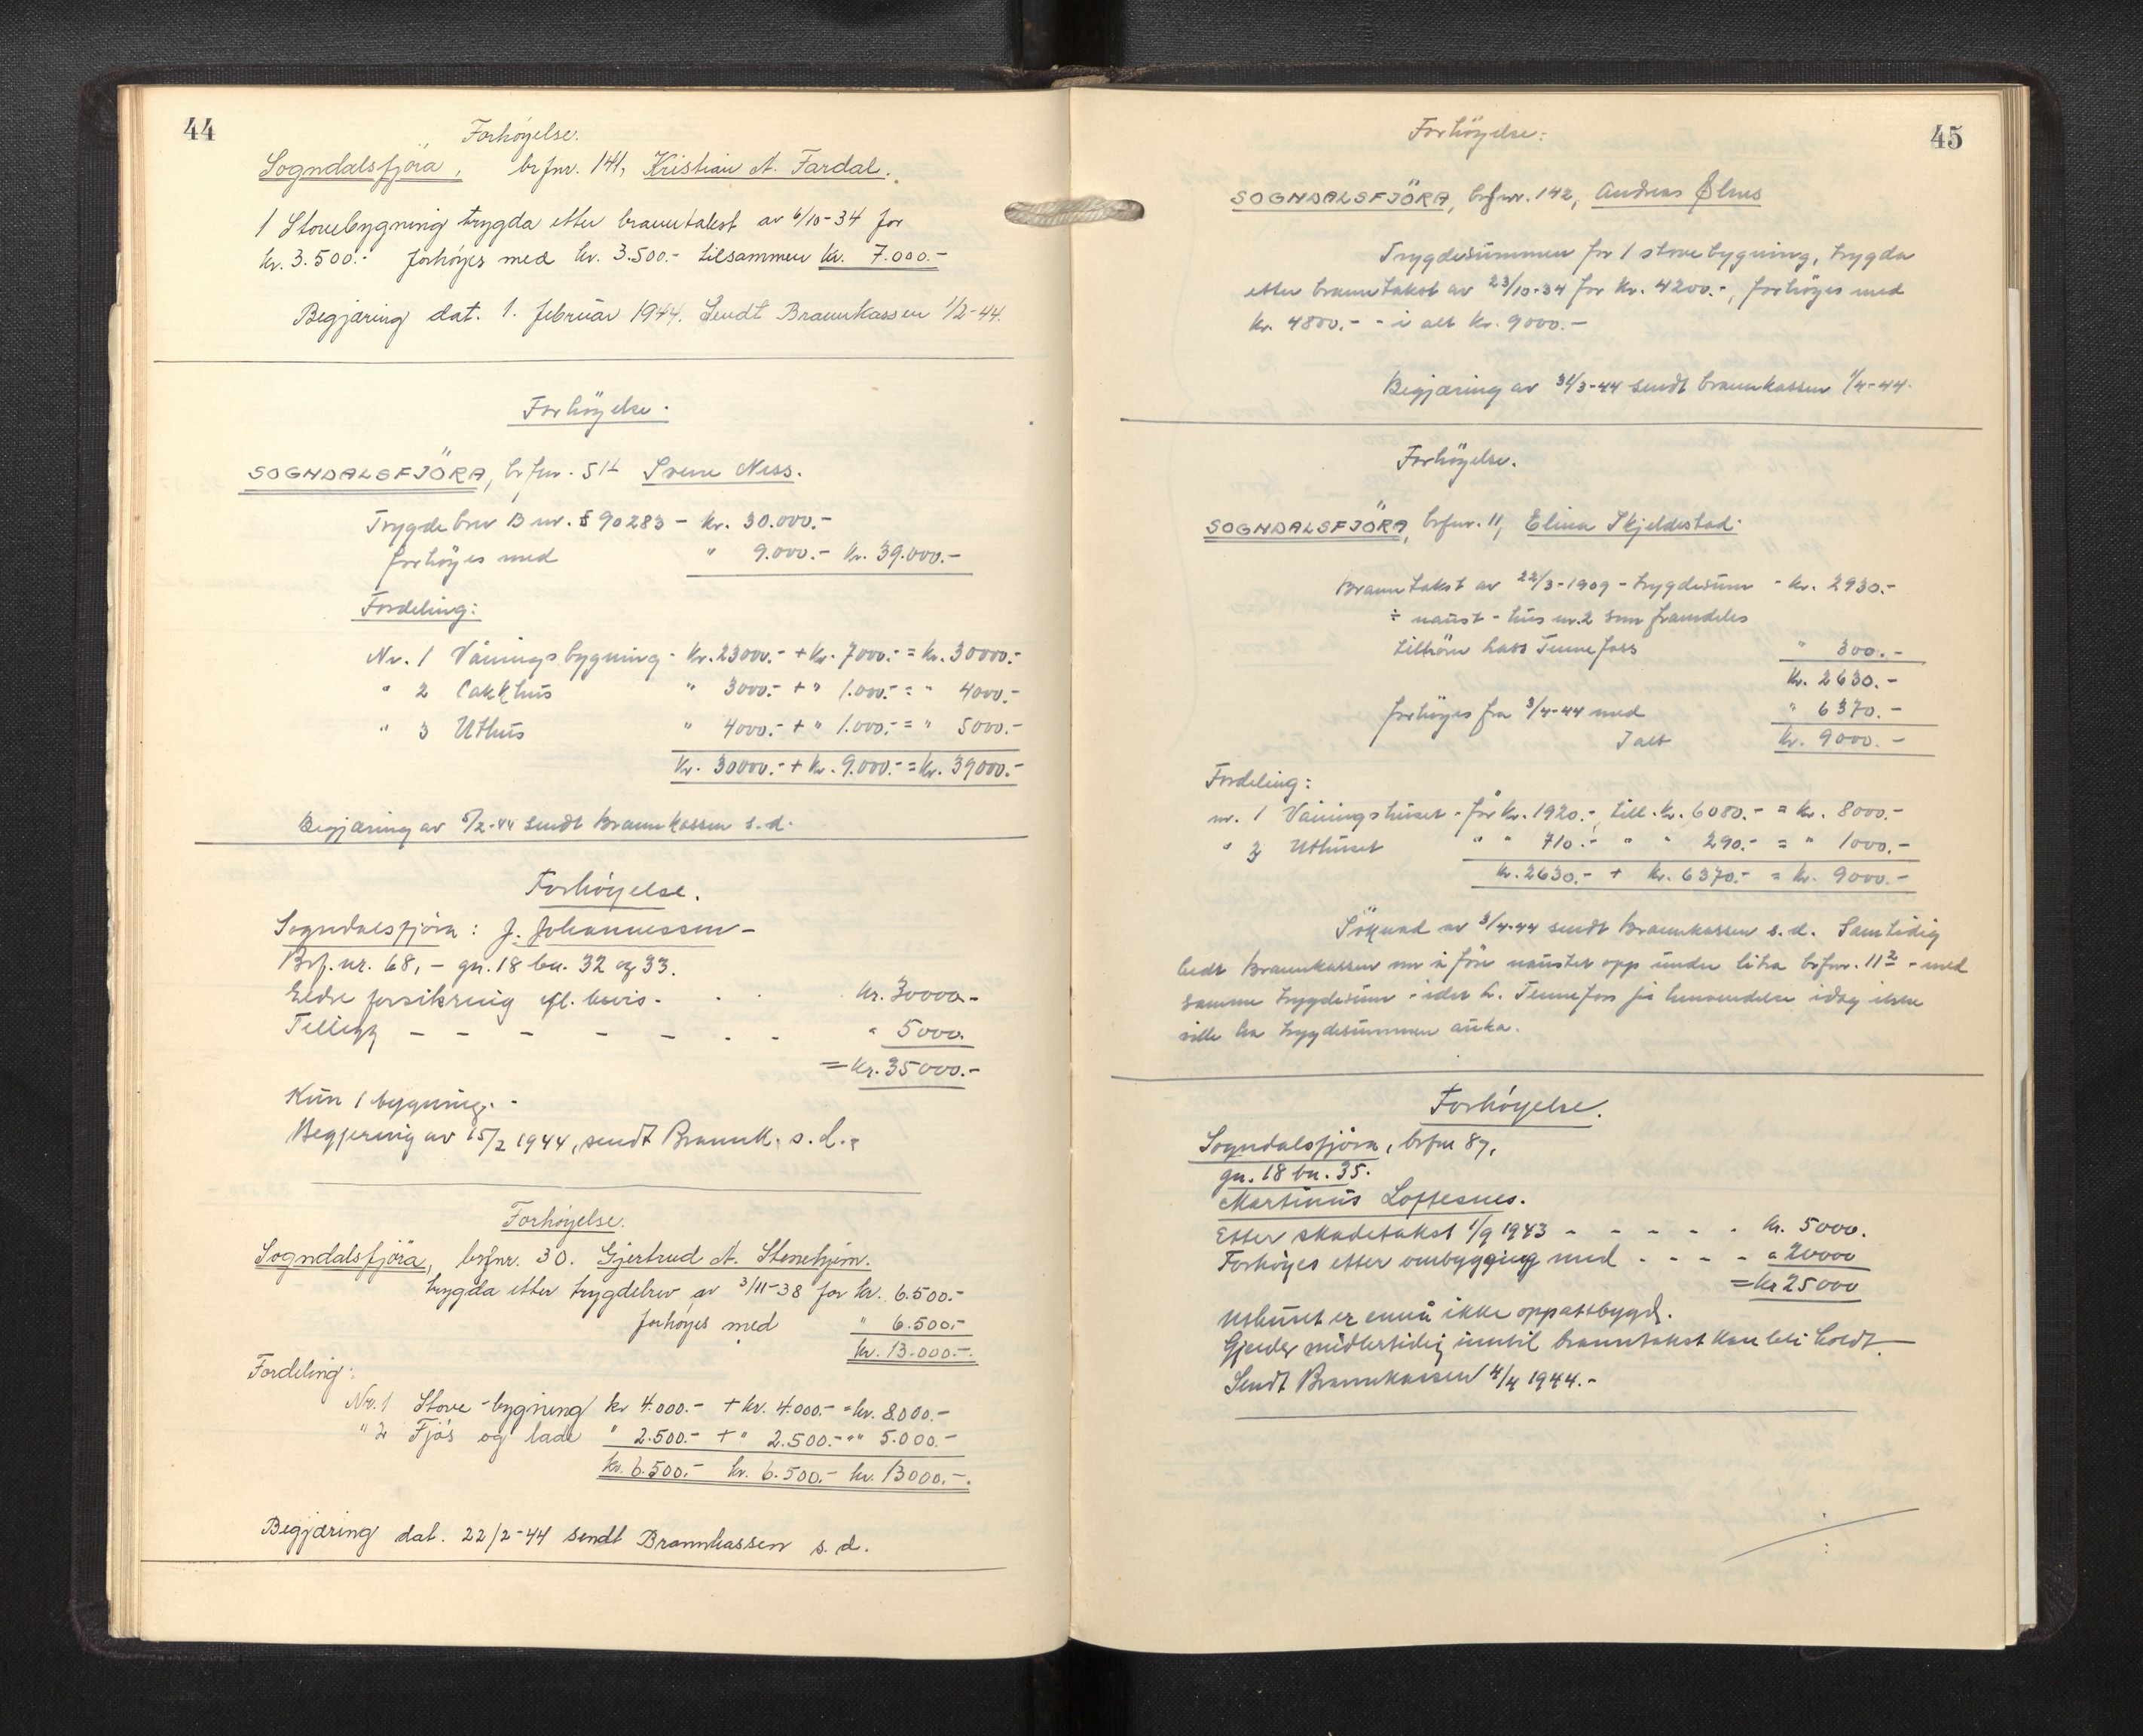 44
Forhøyelse.
Sogndalsfjöra, brfnr. 141, Kristian A. Fardal.
1 Stovebygning trygda etter branntakst av 6/10-34 for
kr. 3.500.- forhøyes med kr. 3.500.- tilsammen kr. 7.000.-
Begjæring dat. 1. februar 1944. Sendt Brannkassen 1/2-44.
Forhöyelse.
SOGNDALSFJÖRA, brfnr. 51 Sverre Ness.
Trygdebrev B nr. 590283 - kr. 30.000.-
forhöyes med " 9.000.- kr. 39.000.-
Fordeling:
Nr. 1 Våningsbygning - kr. 23000.- + kr. 7000.- = kr. 30000.-
" 2 Bakkhus " 3000.- + " 1.000.- = " 4000.-
" 3 Uthus " 4000.- + " 1.000.- = " 5000.-
kr. 30000.- + kr. 9.000.- = kr. 39000.-
Begjæring av 5/2-44 sendt Brannkassen s.d.
Forhöyelse.
Sogndalsfjöra: J. Johannessen -
Brf.nr. 68, - gn. 18 bn. 32 og 33.
Eldre forsikring efl. bevis - . . kr. 30000.-
Tillegg - - - - - . - " 5000.
= kr. 35000.-
Kun 1 bygning. -
Begjering av 15/2 1944, sendt Brannk. s.d.
Forhøyelse.
Sogndalsfjöra, brfnr. 30. Gjertrud A. Stenehjem.
trygda etter trygdebrev av 3/11-38 for kr. 6.500.-
forhøyes med " 6.500.-
kr. 13.000.-
Fordeling:
Nr. 1 Stove-bygning kr 4.000.- + kr. 4.000.- = kr. 8.000.-
" 2 Fjøs og lade " 2.500.- + " 2.500.- = " 5.000.-
kr. 6.500.- kr. 6.500.- kr. 13000.-
Begjæring dat. 22/2-44 sendt Brannkassen s.d.
45
Forhöyelse:
SOGNDALSFJÖRA, brfnr. 142, Andreas Ølnes
Trygdesummen for 1 stovebygning, trygda
etter branntakst av 23/10-34 for kr. 4200.-, forhöyes med
kr. 4800.- - i alt kr. 9000.-
Begjæring av 31/3-44 sendt brannkassen 1/4-44.
Forhöyelse.
SOGNDALSFJÖRA, brfnr. 11, Elina Skjeldestad.
Branntakst av 22/3-1909 - trygdesum - kr. 2930.-
÷ naust - hus nr. 2 som framdeles
tilhörer Lars Tennefoss " 300.-
kr. 2630.-
forhöyes fra 3/4-44 med " 6370.-
I alt kr. 9000.-
Fordeling:
nr. 1 Våningshuset - för kr. 1920.-, till. kr. 6080.- = kr. 8000.-
" 3 Uthuset " " 710.- " " 290.- = " 1000.-
kr. 2630.- + kr. 6370.- = kr. 9000.-
Söknad av 3/4-44 sendt Brannkassen s.d. Samtidig
bedt Brannkassen om å före naustet opp under litra brfnr. 11² - med
samme trygdesum - idet L. Tennefoss på henvendelse idag ikke
ville ha trygdesummen auka.
Forhöyelse.
Sogndalsfjöra, brfnr 87,
gn. 18 bn. 35.
Martinus Loftesnes.
Etter skadetakst 1/9 1943 - - - - - - kr. 5000.
Forhöyes etter ombygging med . - - - " 20000
= kr 25000
Uthuset er ennå ikke oppattbygd.
Gjelder midlertidig inntil branntakst kan bli holdt.
Sendt Brannkassen 4/4 1944.-